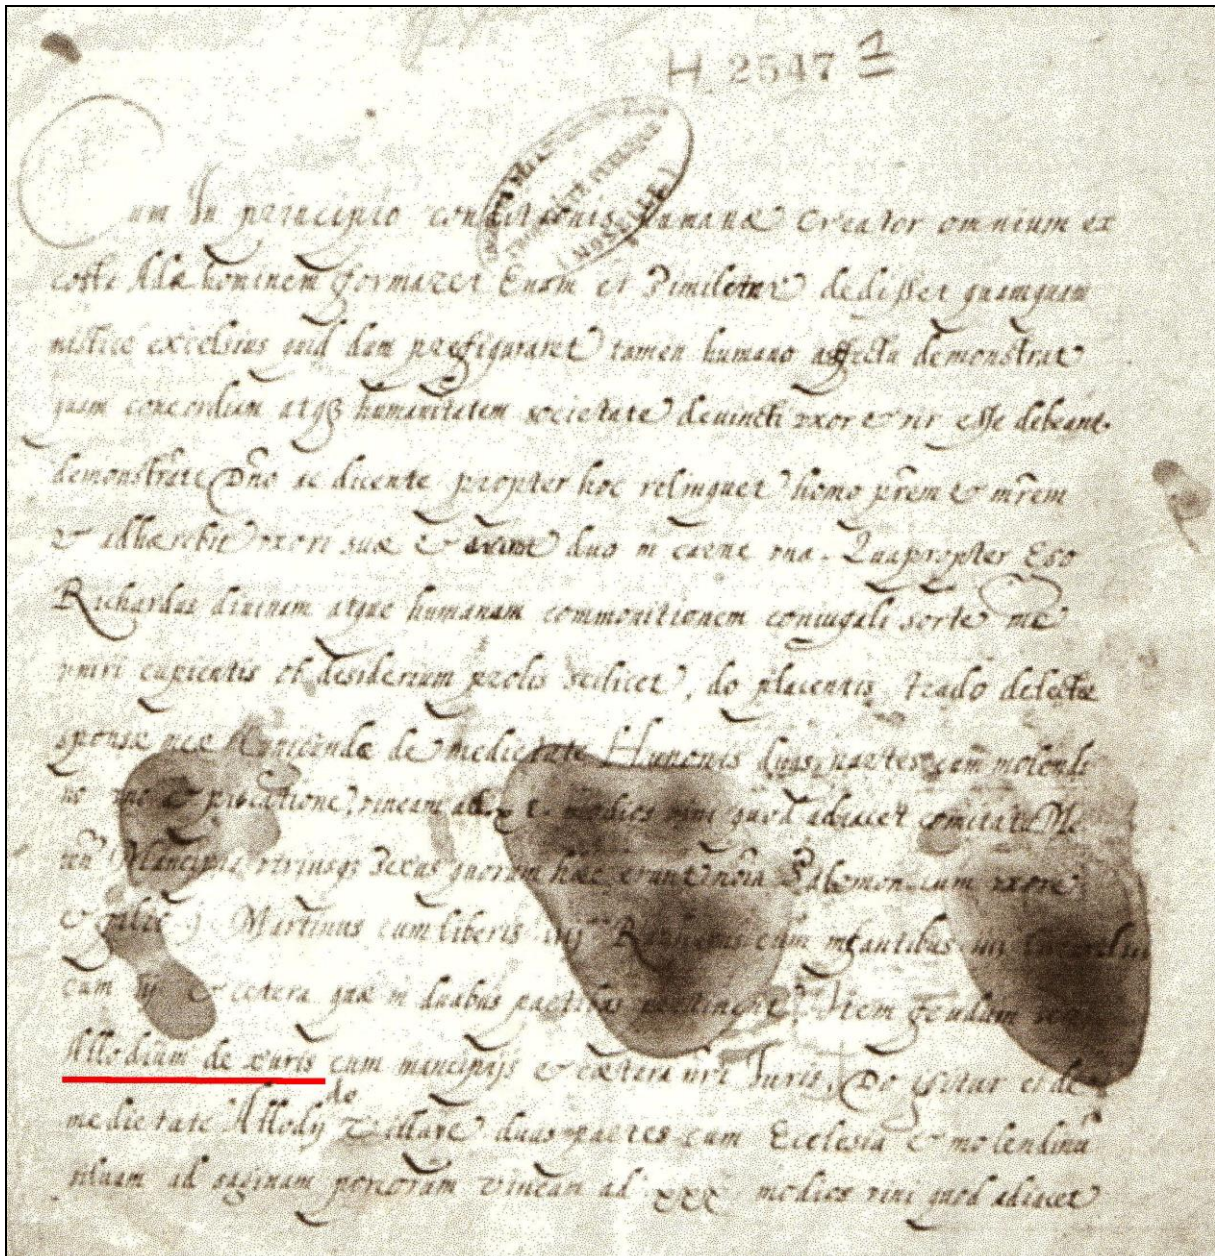 H 2547 1
(MOSELLE)
Cum In principio conditionis humanæ Creator omnium ex
costa Adæ hominem formaret Euam et Similem dedisset quamquam
mistice excelsius quid dam prefiguraret tamen humano affectu demonstrat
quam concordiam atq3 humanitatem societate deuincti vxor & vir esse debeant.
demonstrate Dño ac dicente propter hoc relinquet homo prem & mrem
& adhærebit vxori suæ & duo in carne vna. Quapropter Ego
Richardus diuinam atque humanam commonitionem coniugali sorte me
vniri cupientis ob desiderium prolis scilicet, do placentis trado delectæ
sponsæ meæ de medietate Hunonis duas partes cum molendi
no vno & piscatione, vineam ad modios vini quod adiacet comitatu
Mancipia vtriusq3 sexus quorum hæc erunt noia cum vxore
& Martinus cum liberis iiij cum infantibus iiij
cum iij & cetera quæ in duabus partibus Item feudum
Allodium de vuris cum mancipijs & cætera nri Juris, Do igitur ei de
medietate Allodij de villare duas partes cum Ecclesia & molendinū
siluam ad saginam porcorum vineam ad xxx modios vini quod adiacet